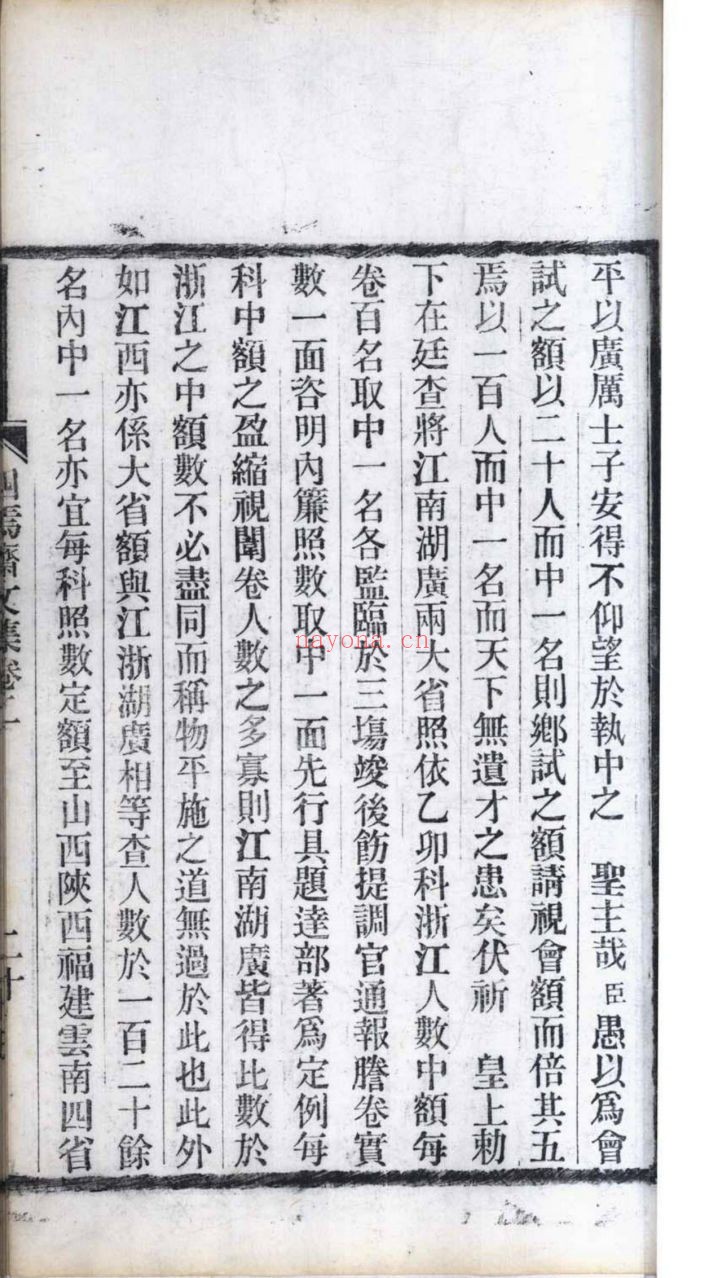 平以廣厲士子安得不仰望於執中之　聖主哉臣愚以爲會
試之額以二十人而中一名則鄉試之額請視會額而倍其五
焉以一百人而中一名而天下無遺才之患矣伏祈　皇上勅
下在廷查將江南湖廣兩大省照依乙卯科浙江人數中額每
卷百名取中一名各監臨於三塲竣後飭提調官通報謄卷實
數一面咨明內簾照數取中一面先行具題達部著爲定例每
科中額之盈縮視闈卷人數之多寡則江南湖廣皆得比數於
浙江之中額數不必盡同而稱物平施之道無過於此也此外
如江西亦係大省額與江浙湖廣相等查人數於一百二十餘
名內中一名亦宜每科照數定額至山西陝西福建雲南四省
焉齋文集卷二
二十
nayona.cn